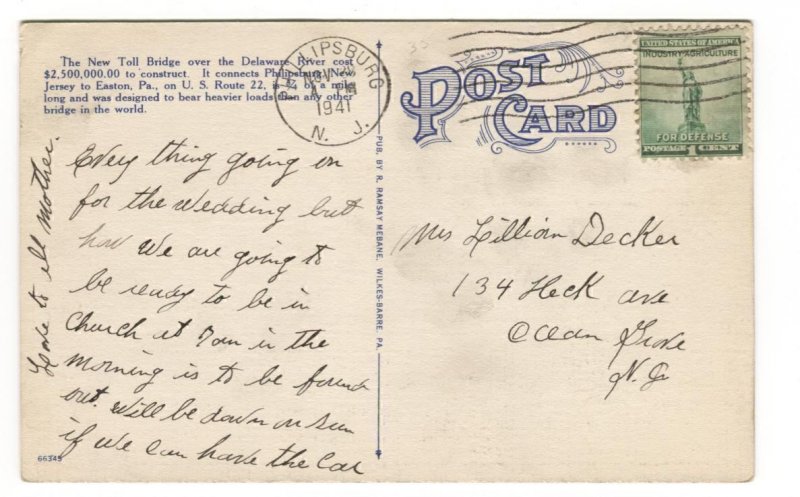 The New Toll Bridge over the Delaware River cost
$2,500,000.00 to construct. It connects Philipsburg, New
Jersey to Easton, Pa., on U. S. Route 22, is ¾ of a mile
long and was designed to bear heavier loads than any other
bridge in the world.
PHILLIPSBURG
NOV
1941
N. J.
POST
CARD
UNITED STATES OF AMERICA
INDUSTRY-AGRICULTURE
FOR DEFENSE
POSTAGE 1 CENT
Every thing going on
for the wedding but
how we are going to
be ready to be in
Church at 7 am in the
morning is to be found
out. Will be down on Sun
if we can have the Car
Love to all Mother.
PUB. BY R. RAMSAY MEBANE, WILKES-BARRE, PA.
Mrs Lillian Decker
134 Heck ave
Ocean Grove
N.J
66345